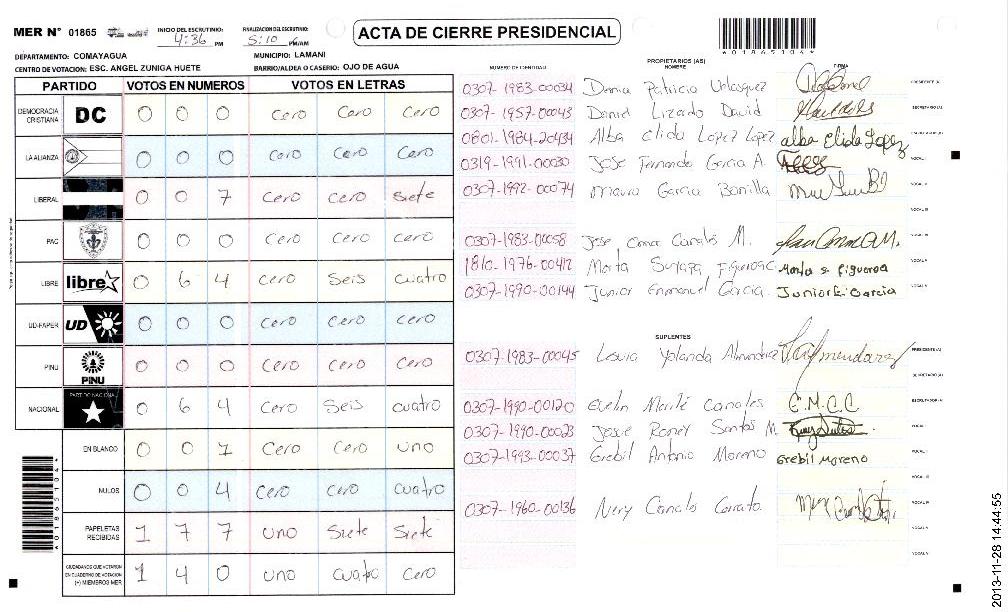 MER Nº 01865
INICIO DEL ESCRUTINIO: 4:36 PM
FINALIZACION DEL ESCRUTINIO: 5:10 PM/AM
ACTA DE CIERRE PRESIDENCIAL
*01865104*
DEPARTAMENTO: COMAYAGUA MUNICIPIO: LAMANI
CENTRO DE VOTACION: ESC. ANGEL ZUNIGA HUETE BARRIO/ALDEA O CASERIO: OJO DE AGUA
PARTIDO VOTOS EN NUMEROS VOTOS EN LETRAS
DEMOCRACIA CRISTIANA DC 0 0 0 cero cero cero
LA ALIANZA 0 0 0 cero cero cero
LIBERAL 0 0 7 cero cero siete
PAC 0 0 0 cero cero cero
LIBRE libre 0 6 4 cero seis cuatro
UD-FAPER UD 0 0 0 cero cero cero
PINU PINU 0 0 0 cero cero cero
NACIONAL PARTIDO NACIONAL 0 6 4 cero seis cuatro
EN BLANCO 0 0 1 cero cero uno
NULOS 0 0 4 cero cero cuatro
PAPELETAS RECIBIDAS 1 7 7 uno siete siete
CIUDADANOS QUE VOTARON EN CUADERNO DE VOTACION (+) MIEMBROS MER 1 4 0 uno cuatro cero
*01865104*
PROPIETARIOS (AS)
NUMERO DE IDENTIDAD NOMBRE FIRMA
0307-1983-00034 Denia Patricia Velasquez PRESIDENTE (A)
0307-1957-00043 Daniel Lizardo David SECRETARIO (A)
0801-1984-20434 Alba Elida Lopez Lopez alba Elida Lopez ESCRUTADOR (A)
0319-1991-00030 Jose Fernando Garcia A. VOCAL I
0307-1992-00074 Mauro Garcia Bonilla VOCAL II
VOCAL III
0307-1983-00058 Jose Canales M. VOCAL IV
1810-1976-00412 Marta Suyapa Figueroa C. Marta s. Figueroa VOCAL V
0307-1990-00144 Junior Enmanuel Garcia Junior E. Garcia VOCAL VI
SUPLENTES
0307-1983-00045 Yolanda PRESIDENTE (A)
SECRETARIO (A)
0307-1990-00120 Evelin Marité Canales C.M.C.C ESCRUTADOR (A)
0307-1990-00023 Jossie Roney Santos M. VOCAL I
0307-1993-00037 Grebil Antonio Moreno Grebil Moreno VOCAL II
VOCAL III
0307-1960-00136 Nery Canales VOCAL IV
VOCAL V
VOCAL VI
2013-11-28 14:44:55